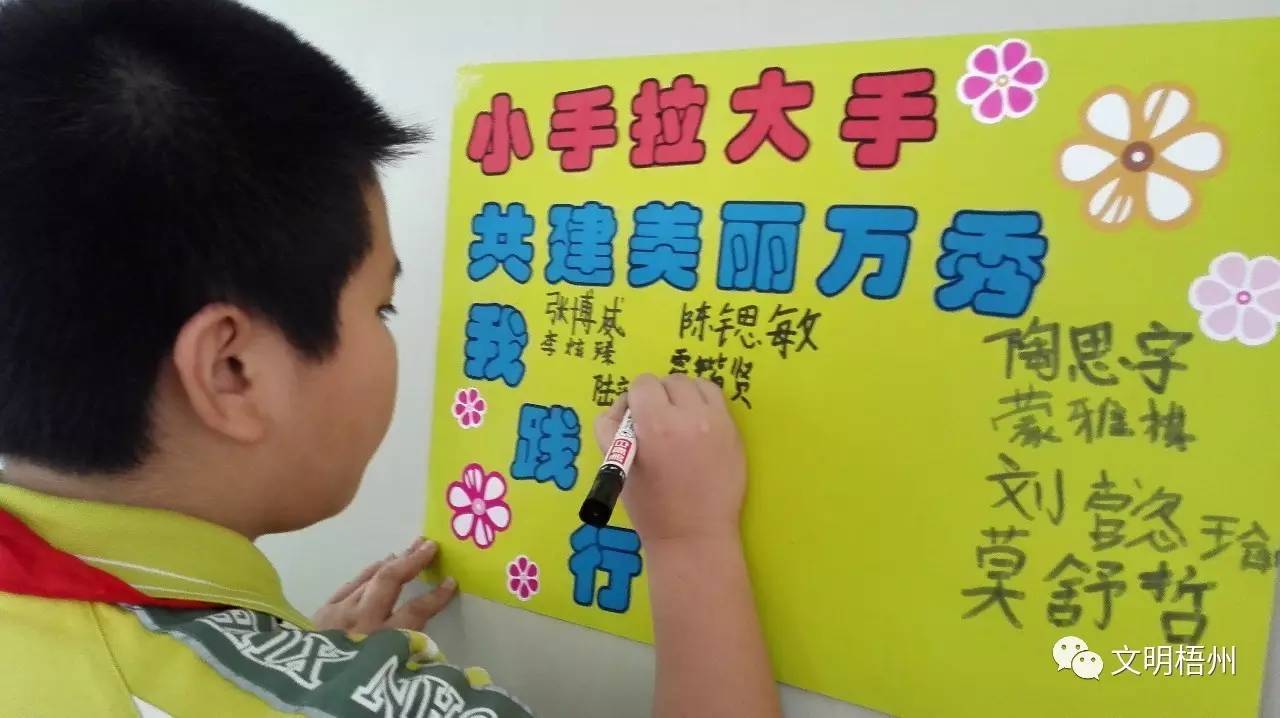 小手拉大手
共建美丽万秀
我践行
张博威
李炫臻
陆
陈锶敏
贤
陶思字
蒙雅棋
刘懿瑜
莫舒哲
文明梧州